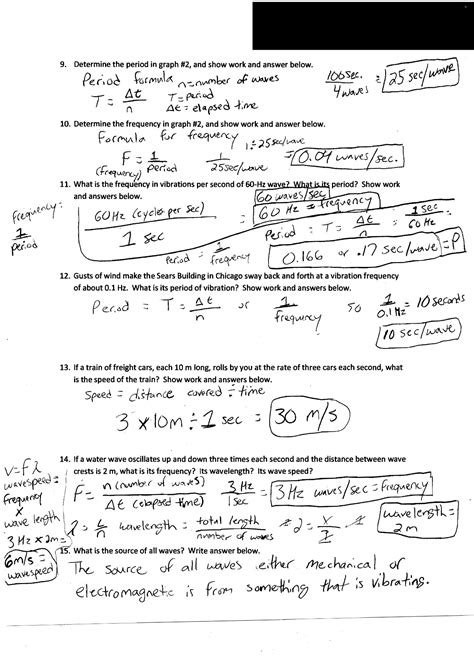 9. Determine the period in graph #2, and show work and answer below.
Period formula n=number of waves
T = Δt/n T=period
Δt = elapsed time
100sec./4waves = 25 sec/wave
10. Determine the frequency in graph #2, and show work and answer below.
Formula for frequency
F = 1/period
(frequency)
1/25sec/wave = 0.04 waves/sec.
11. What is the frequency in vibrations per second of 60-Hz wave? What is its period? Show work
and answers below.
60 waves/sec
frequency:
1/period
60Hz (cycles per sec)/1 sec = 60 Hz = frequency
Period = T = Δt/n = 1 sec/60 Hz
Period = 1/frequency
0.166 or .17 sec/wave = P
12. Gusts of wind make the Sears Building in Chicago sway back and forth at a vibration frequency
of about 0.1 Hz. What is its period of vibration? Show work and answers below.
Period = T = Δt/n or 1/frequency so 1/0.1 Hz = 10 seconds
10 sec/wave
13. If a train of freight cars, each 10 m long, rolls by you at the rate of three cars each second, what
is the speed of the train? Show work and answers below.
Speed = distance covered ÷ time
3 x 10m ÷ 1 sec = 30 m/s
14. If a water wave oscillates up and down three times each second and the distance between wave
crests is 2 m, what is its frequency? Its wavelength? Its wave speed?
v=fλ
wavespeed=
frequency
x
wave length
3 Hz x 2m =
6m/s =
wavespeed
F = n (number of waves)/Δt (elapsed time) 3 Hz/1sec = 3 Hz waves/sec = frequency
λ = L/n wavelength = total length/number of waves
wavelength =
2m
15. What is the source of all waves? Write answer below.
The source of all waves either mechanical or
electromagnetic is from something that is vibrating.